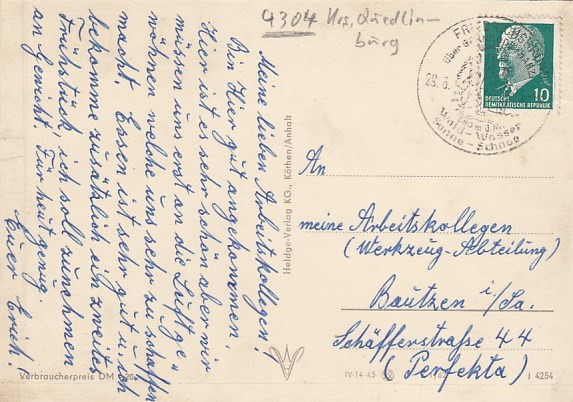 4304 Krs. Quedlin-
burg
Meine lieben Arbeitskollegen!
Bin Hier gut angekommen.
Hier ist es sehr schön aber wir
müssen uns erst an die Luft ge"
wöhnen welche uns sehr zu schaffen
macht. Essen ist sehr gut u. ich
bekomme zusätzlich ein zweites
Frühstück ich soll zunehmen
an Gewicht. Für heut genug.
Euer Erich!
Verbraucherpreis DM
Heldge-Verlag KG., Köthen/Anhalt
über
Wald - Wasser
Sonne - Schnee
10
DEUTSCHE
DEMOKRATISCHE REPUBLIK
An
meine Arbeitskollegen
(Werkzeug-Abteilung)
Bautzen i/Sa.
Schäfferstraße 44
(Perfekta)
IV-14-45
I 4254